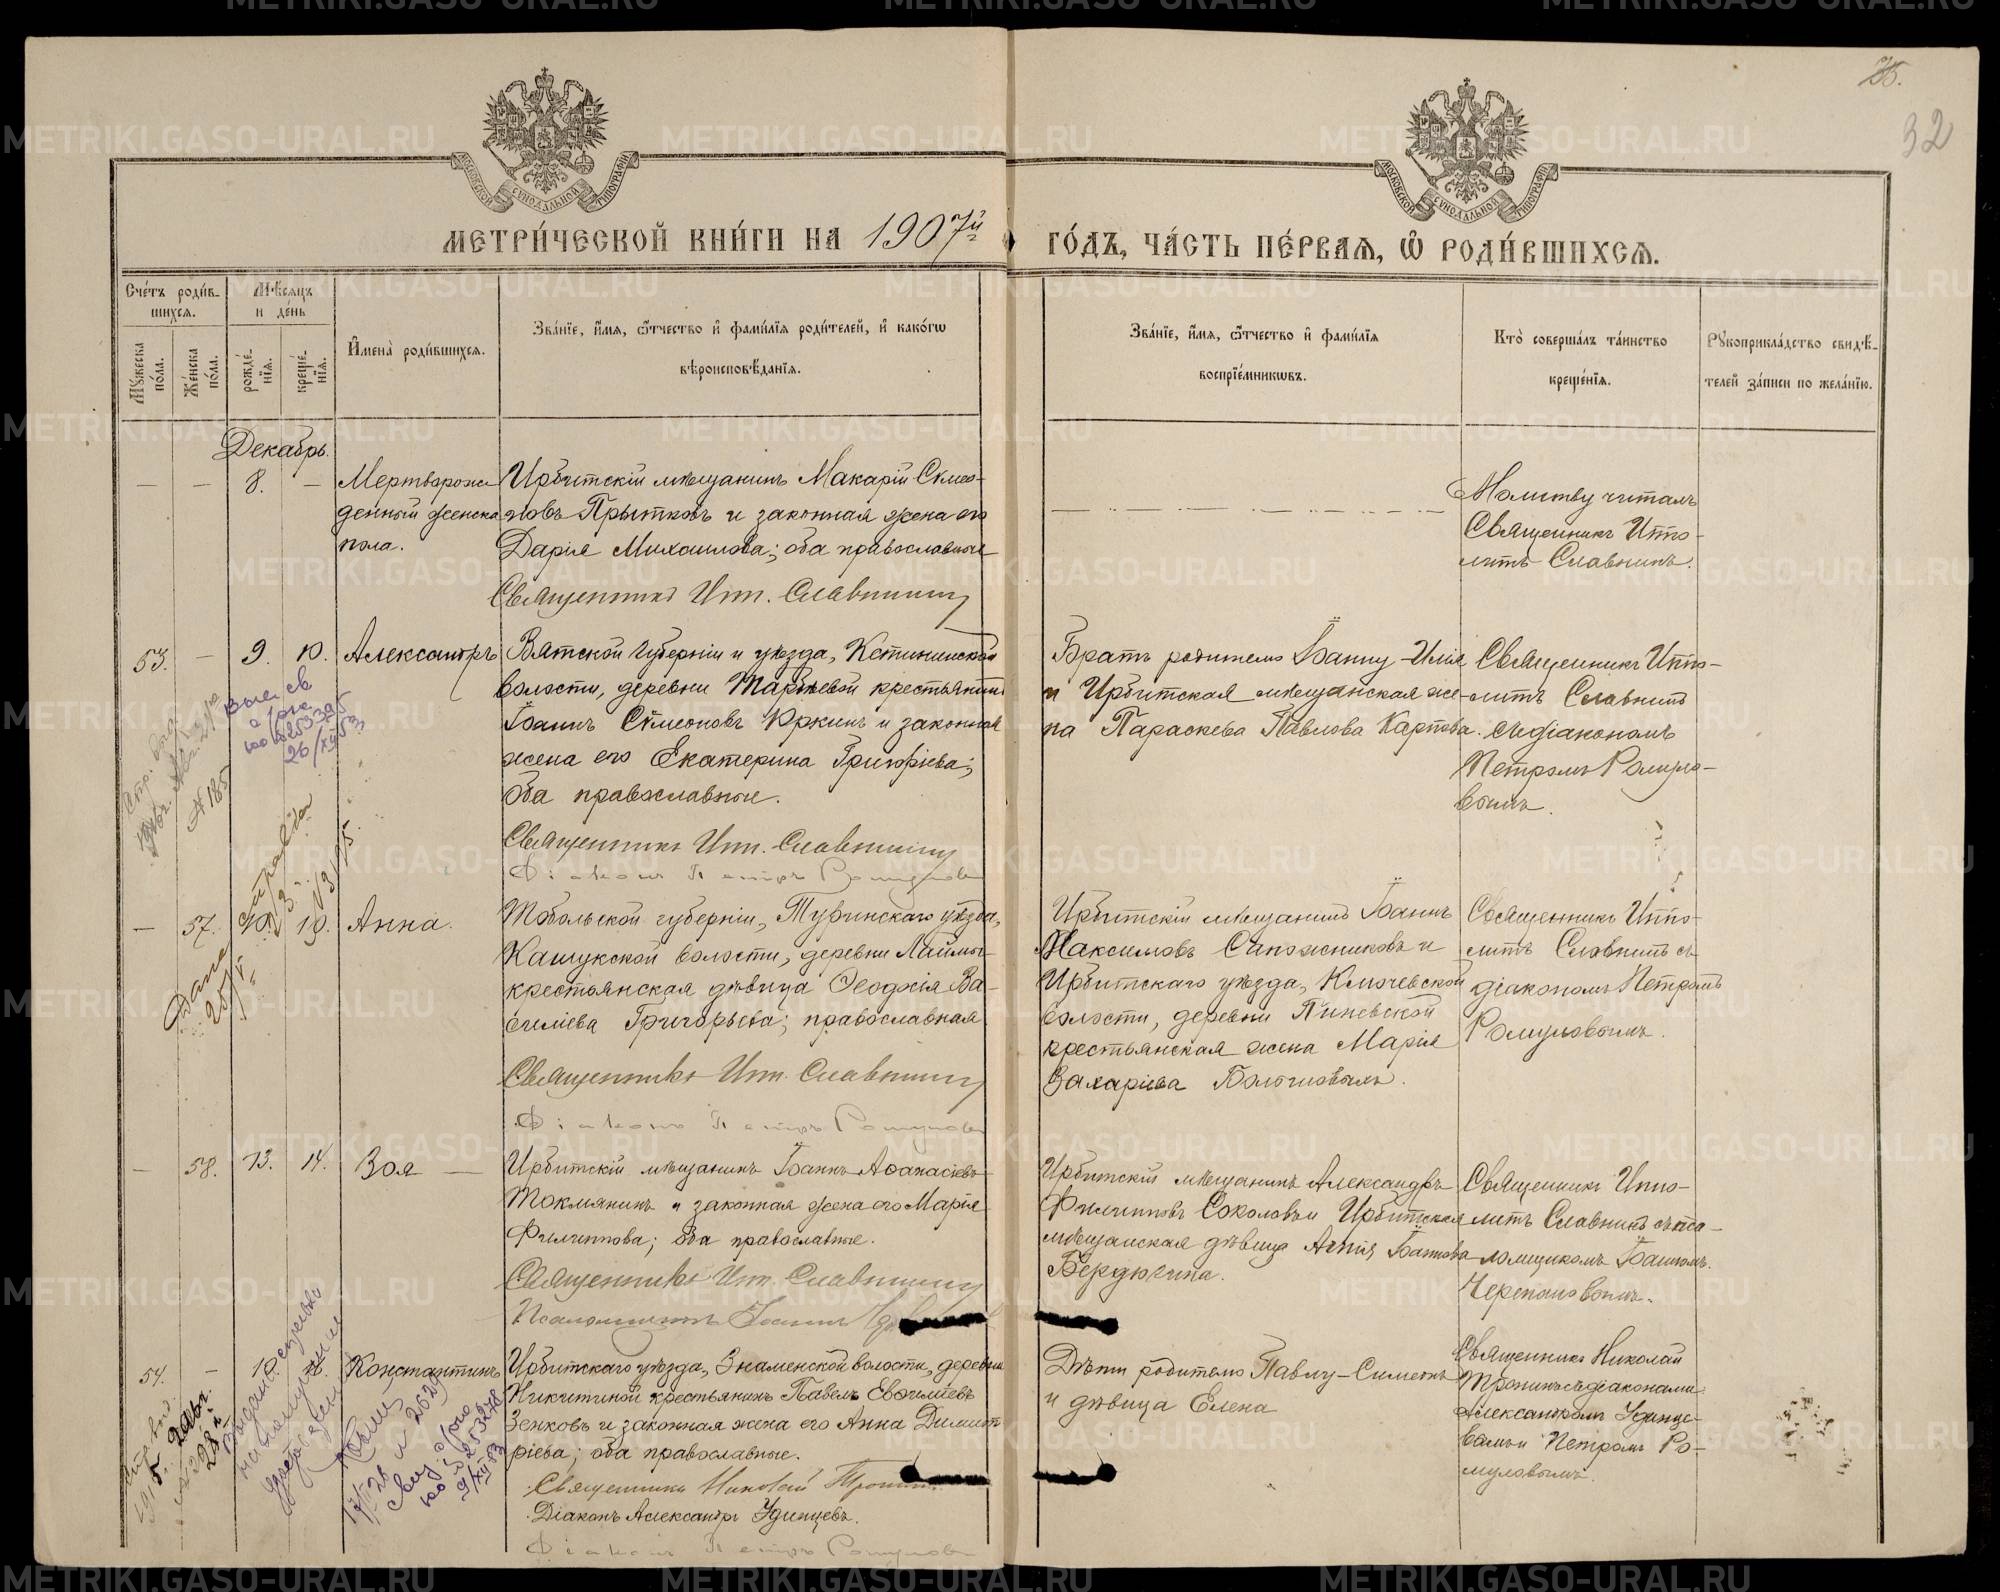 METRIKI.GASO-URAL.RU
32
МОСКОВСКОЙ СУНОДАЛЬНОЙ ТИПОГРАФІИ
МОСКОВСКОЙ СУНОДАЛЬНОЙ ТИПОГРАФІИ
МЕТРИ́ЧЕСКОЙ КНИ́ГИ НА 1907й ГО́ДЪ, ЧА́СТЬ ПЕ́РВАѦ, Ѡ РОДИ́ВШИХСѦ.
Сче́тъ роди́в-
шихсѧ.
Мѣсѧцъ
и де́нь
Мꙋжеска по́ла.
Же́нска по́ла.
рожде́-нїѧ.
креще́-нїѧ.
Имена̀ роди́вшихсѧ.
Зва́нїе, и́мѧ, ѻ́тчество и фами́лїѧ роди́телей, и како́гѡ
вѣроисповѣ́данїѧ.
Зва́нїе, и́мѧ, ѻ́тчество и фами́лїѧ
воспрїе́мникѡвъ.
Кто̀ соверша́лъ та́инство
креще́нїѧ.
Рꙋкоприкла́дство свидѣ́-
телей за́писи по жела́нїю.
Декабрь.
— — 8. —
Мертворож-
денный женска
пола.
Ирбитскій мѣщанинъ Макарій Симео-
новъ Прытковъ и законная жена его
Дарія Михаилова; оба православные
Священникъ Ипп. Славнинъ
Молитву читалъ
Священникъ Иппо-
литъ Славнинъ.
53. — 9. 10.
Александръ
Вятской губерніи и уѣзда, Кстининской
волости, деревни крестьянинъ
Іоаннъ Симеоновъ и законная
жена его Екатерина Григоріева;
оба православные.
Священникъ Ипп. Славнинъ
Діаконъ Петръ Ромуловъ
Братъ родителю Іоанну Илія
и Ирбитская мѣщанская же-
на Параскева Павлова Карпова.
Священникъ Иппо-
литъ Славнинъ
съ діакономъ
Петромъ Ромуло-
вымъ.
— 57. 10. 10.
Анна.
Тобольской губерніи, Туринскаго уѣзда,
Кашукской волости, деревни
крестьянская дѣвица Ѳеодосія Ва-
силіева Григорьева; православная
Священникъ Ипп. Славнинъ
Діаконъ Петръ Ромуловъ
Ирбитскій мѣщанинъ Іоаннъ
Максимовъ Сапожниковъ и
Ирбитскаго уѣзда, Ключевской
волости, деревни
крестьянская жена Марія
Захаріева
Священникъ Иппо-
литъ Славнинъ съ
діакономъ Петромъ
Ромуловымъ.
— 58. 13. 14.
Зоя —
Ирбитскій мѣщанинъ Іоаннъ Аѳанасіевъ
Токмянинъ и законная жена его Марія
Филиппова; оба православные.
Священникъ Ипп. Славнинъ
Псаломщикъ Іоаннъ
Ирбитскій мѣщанинъ Александръ
Филипповъ Соколовъ и Ирбитская
мѣщанская дѣвица Іоаннова
Бердюгина.
Священникъ Иппо-
литъ Славнинъ съ пса-
ломщикомъ Іоанномъ
Черепановымъ.
54. —
Константинъ
Ирбитскаго уѣзда, Знаменской волости, деревни
Никитиной крестьянинъ Павелъ
Зенковъ и законная жена его Анна Димит-
ріева; оба православные.
Священникъ Николай Тронинъ
Діаконъ Александръ Удинцевъ.
Діаконъ Петръ Ромуловъ
Дѣти родителю Павлу — Симеонъ
и дѣвица Елена
Священникъ Николай
Тронинъ съ діаконами
Александромъ Удинце-
вымъ и Петромъ Ро-
муловымъ.